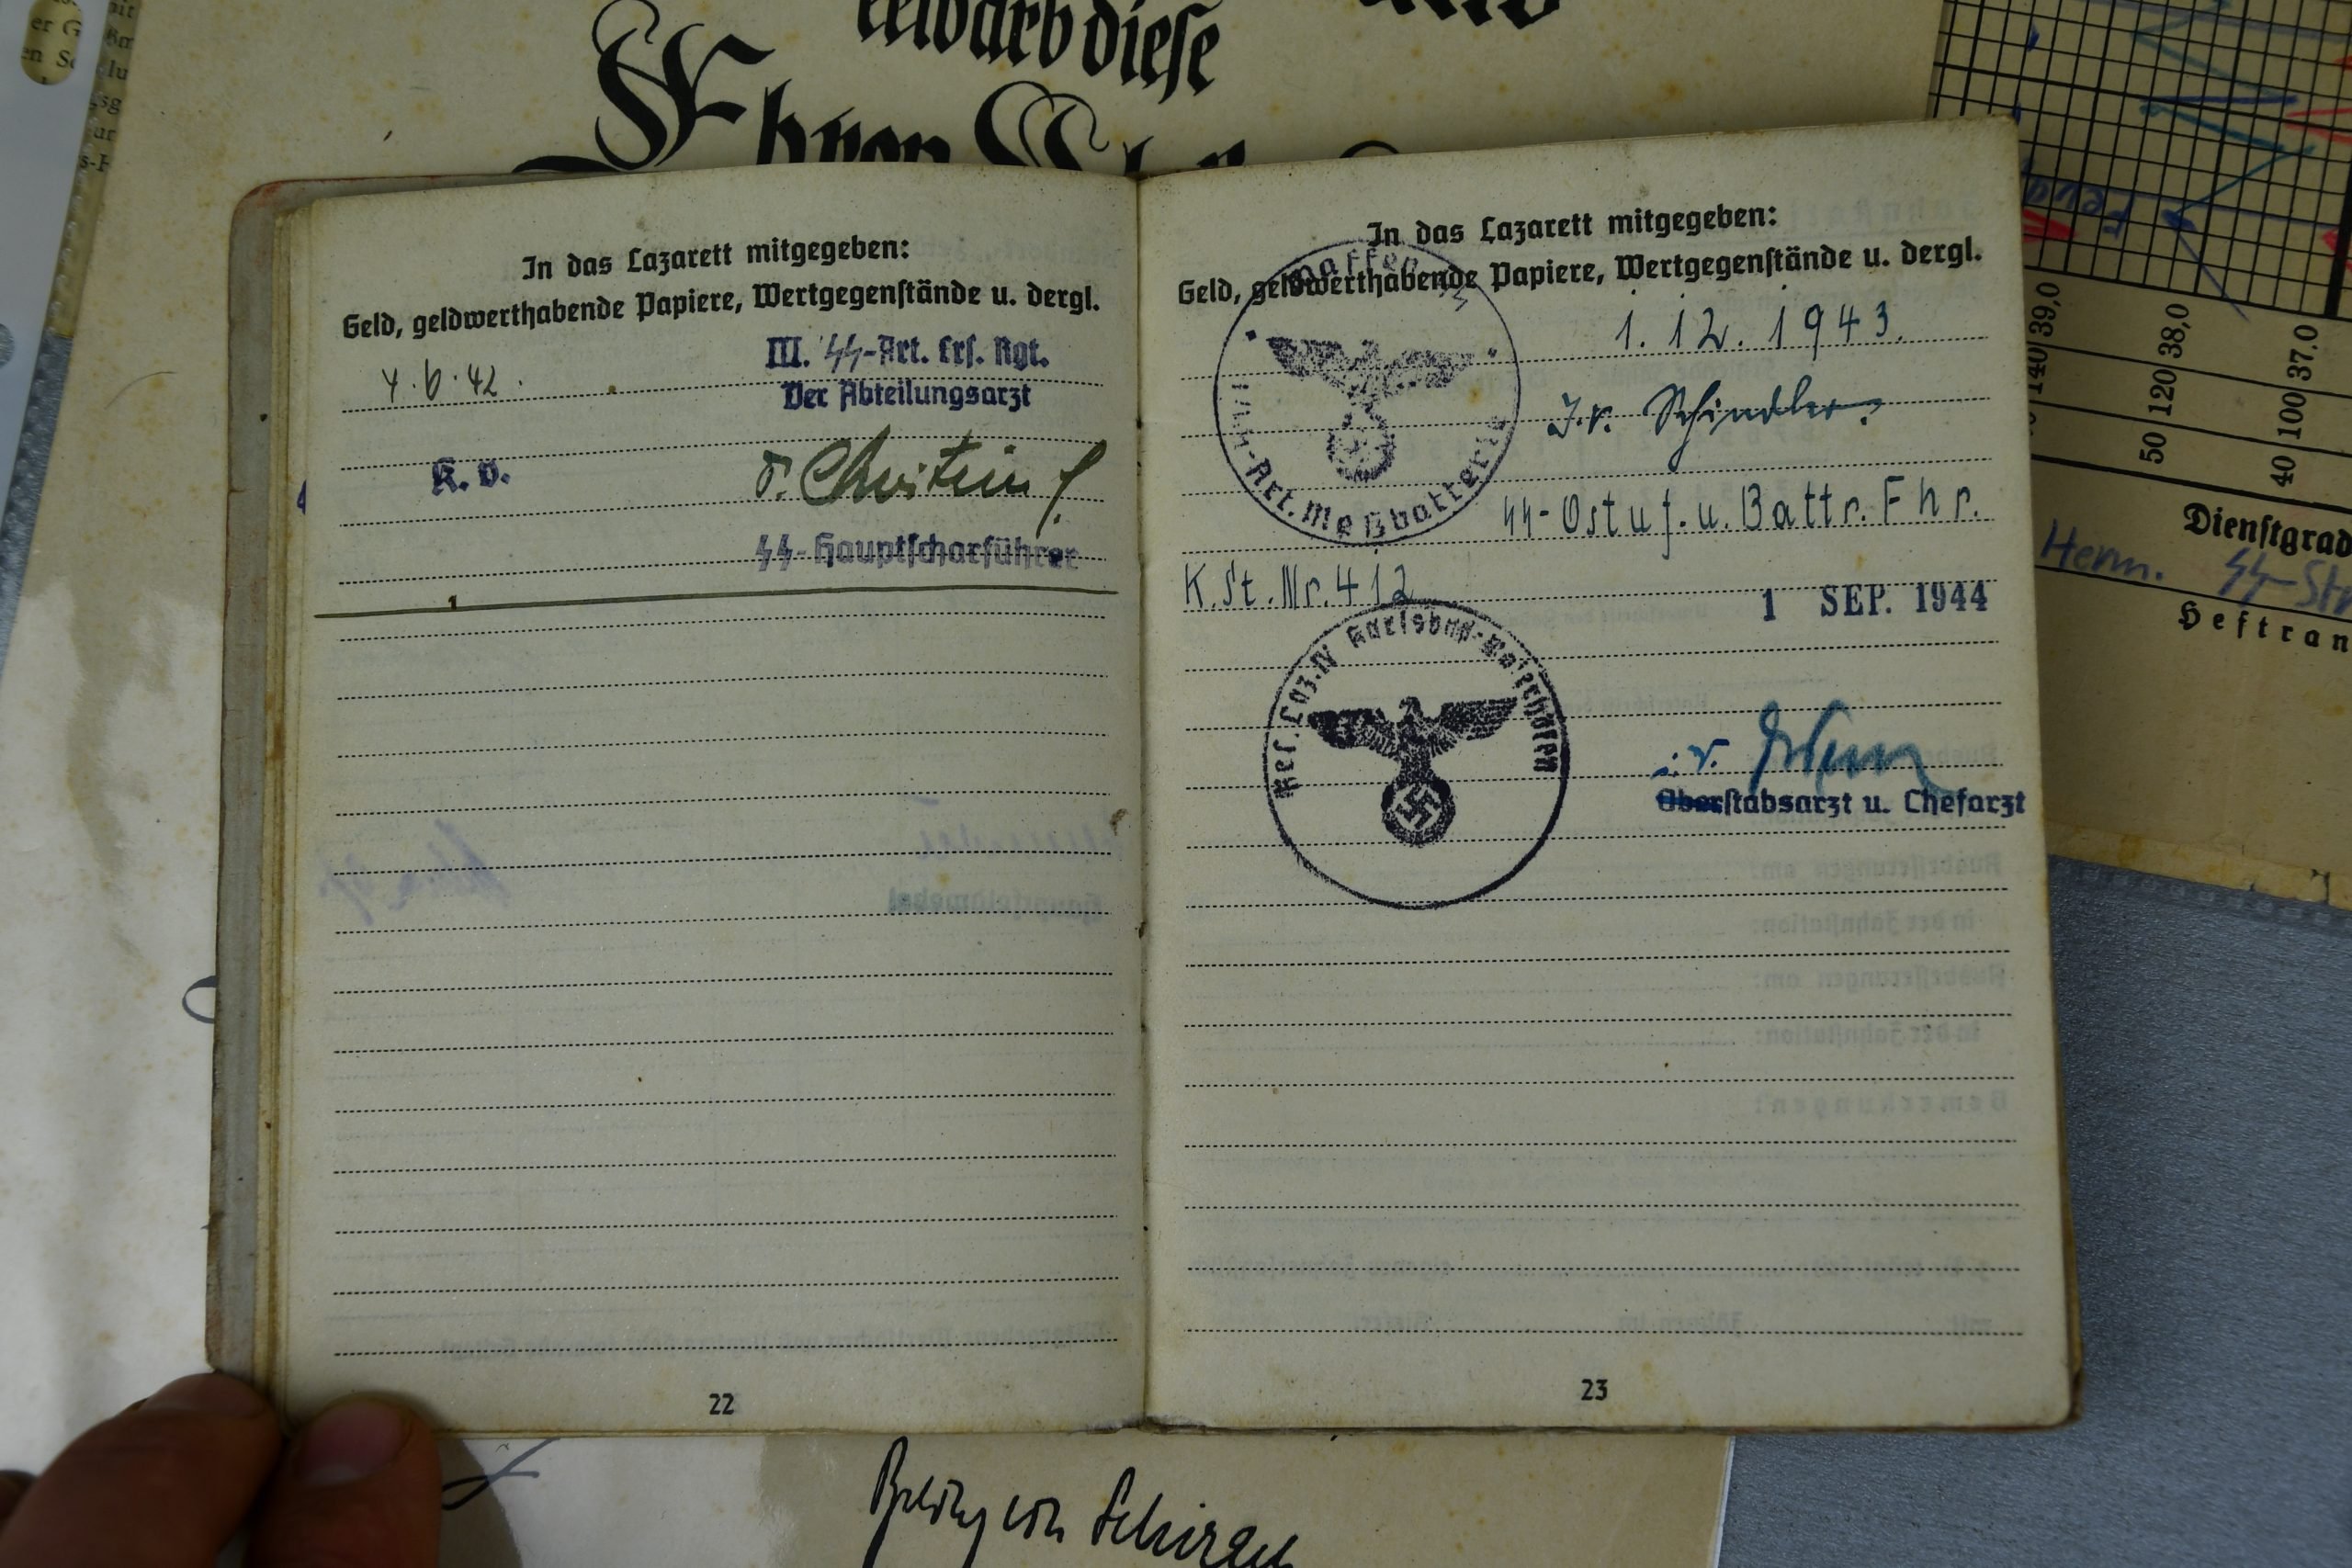 erwarb diese
In das Lazarett mitgegeben:
Geld, geldwerthabende Papiere, Wertgegenstände u. dergl.
4.6.42.
III. ᛋᛋ-Art. Ers. Rgt.
Der Abteilungsarzt
K. v.
ᛋᛋ-Hauptscharführer
22
In das Lazarett mitgegeben:
Geld, geldwerthabende Papiere, Wertgegenstände u. dergl.
Waffen
Art. Meßbatterie
1. 12. 1943.
Schindler
ᛋᛋ-Ostuf. u. Battr. Fhr.
K.St.Nr. 412
1 SEP. 1944
Res. Laz. IV Karlsbad-Meierhöfen
i. V.
Oberstabsarzt u. Chefarzt
23
140 39,0
50 120 38,0
40 100 37,0
Dienstgrad
Herm. ᛋᛋ-St
Heftran
von